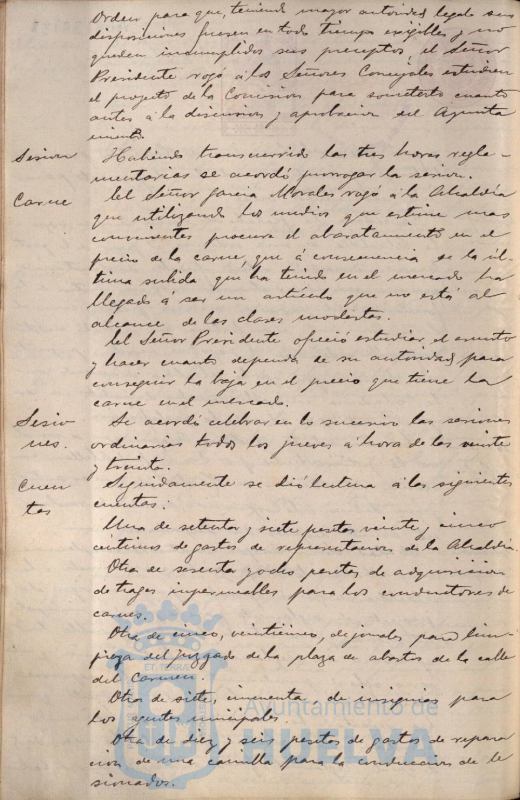 Orden para que, teniendo mayor autoridad legal sus
disposiciones fuesen en todo tiempo exigibles y no
queden incumplidos sus preceptos, el Señor
Presidente rogó á los Señores Concejales estudien
el proyecto de la Comision para someterlo cuanto
antes á la discusion y aprobacion del Ayunta
miento.
Sesion Habiendo transcurrido las tres horas regla-
mentarias se acordó prorrogar la sesion.
Carne El Señor Garcia Morales rogó á la Alcaldía
que utilizando los medios que estime mas
convenientes procure el abaratamiento en el
precio de la carne, que á consecuencia de la úl-
tima subida que ha tenido en el mercado ha
llegado á ser un artículo que no está al
alcance de las clases modestas.
El Señor Presidente ofreció estudiar el asunto
y hacer cuanto dependa de su autoridad para
conseguir la baja en el precio que tiene la
carne en el mercado.
Sesio Se acordó celebrar en lo sucesivo las sesiones
nes. ordinarias todos los jueves á hora de las veinte
y treinta.
Cuen Seguidamente se dió lectura á las siguientes
tas cuentas:
Una de setenta y siete pesetas veinte y cinco
céntimos de gastos de representacion de la Alcaldia.
Otra de sesenta y ocho pesetas de adquisicion
de trages impermeables para los conductores de
carnes.
Otra de cinco, veinticinco, de jornales para lim-
pieza del juzgado de la plaza de abastos de la calle
del Carmen.
Otra de siete, cincuenta, de insignias para
los agentes municipales.
Otra de diez y seis pesetas de gastos de repara
cion de una camilla para la conduccion de le
sionados.
ET TERRÆ
Ayuntamiento de
HUELVA